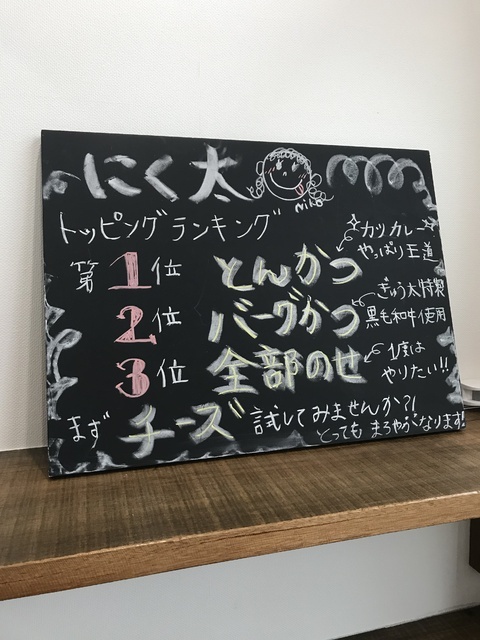 にく太
niko
トッピングランキング
第1位 とんかつ
カツカレー
やっぱり王道
2位 バーグかつ
ぎゅう太特製
黒毛和牛使用
3位 全部のせ
1度は
やりたい!!
まず チーズ 試してみませんか?!
とっても まろやかになります